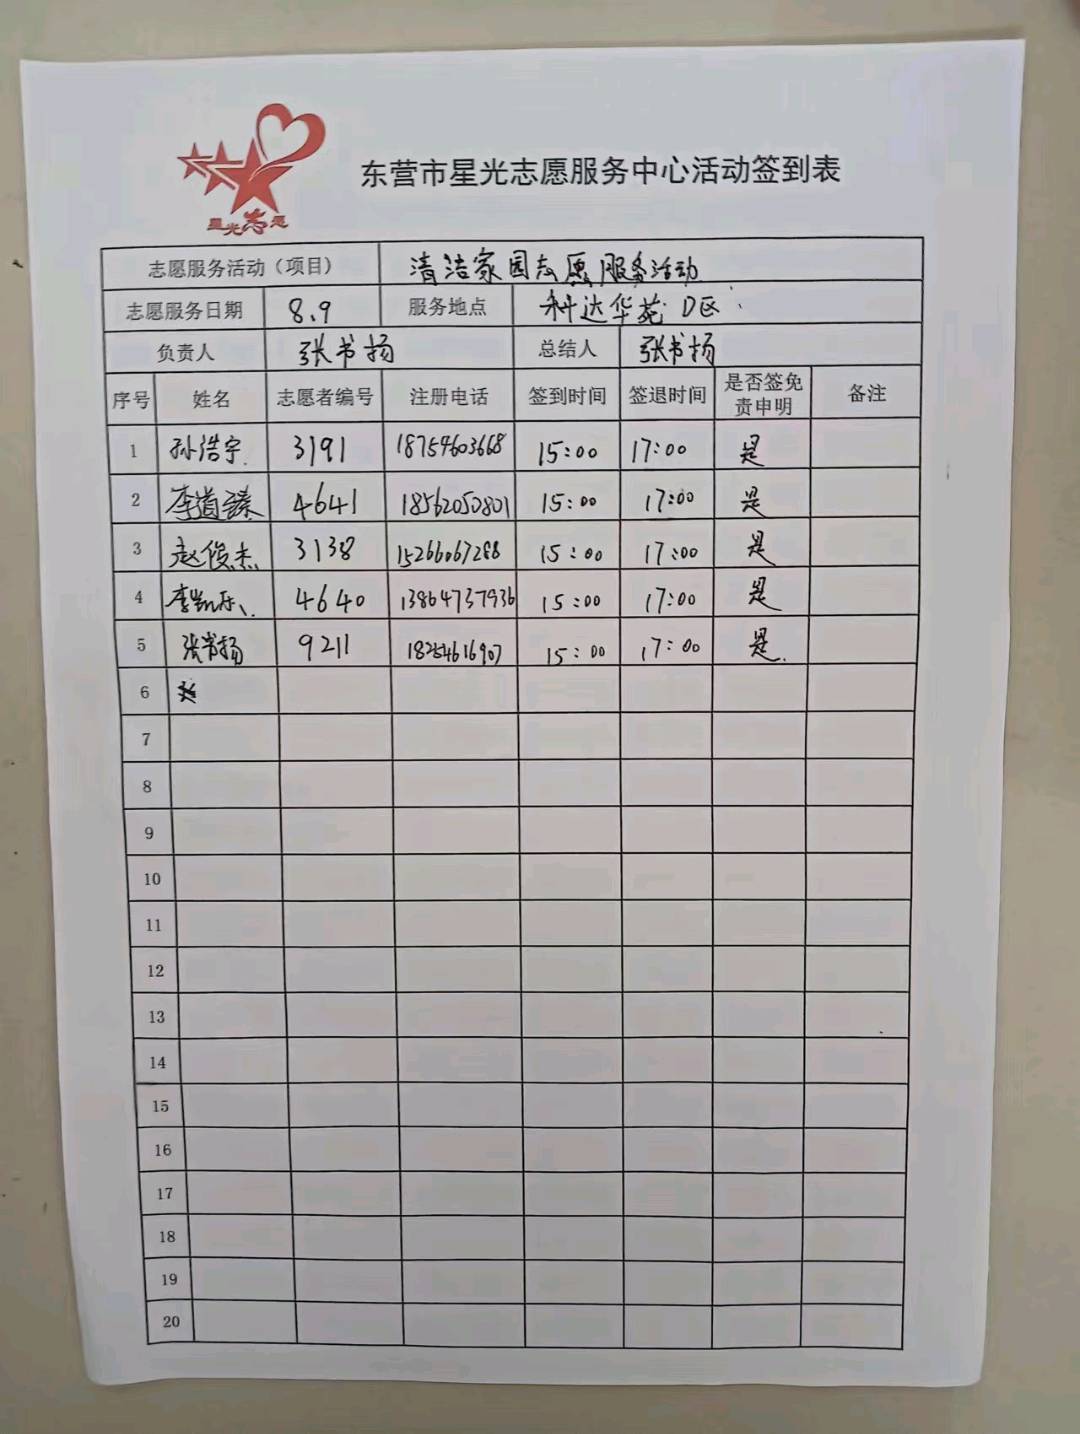 星光志愿
东营市星光志愿服务中心活动签到表
志愿服务活动（项目） 清洁家园志愿服务活动
志愿服务日期 8.9 服务地点 科达华苑 D区
负责人 张书扬 总结人 张书扬
序号 姓名 志愿者编号 注册电话 签到时间 签退时间 是否签免责申明 备注
1 孙浩宇 3191 18754603668 15:00 17:00 是
2 李道臻 4641 18562050801 15:00 17:00 是
3 赵俊杰 3138 15266067288 15:00 17:00 是
4 李凯乐 4640 13864737936 15:00 17:00 是
5 张书扬 9211 18254616907 15:00 17:00 是
6
7
8
9
10
11
12
13
14
15
16
17
18
19
20